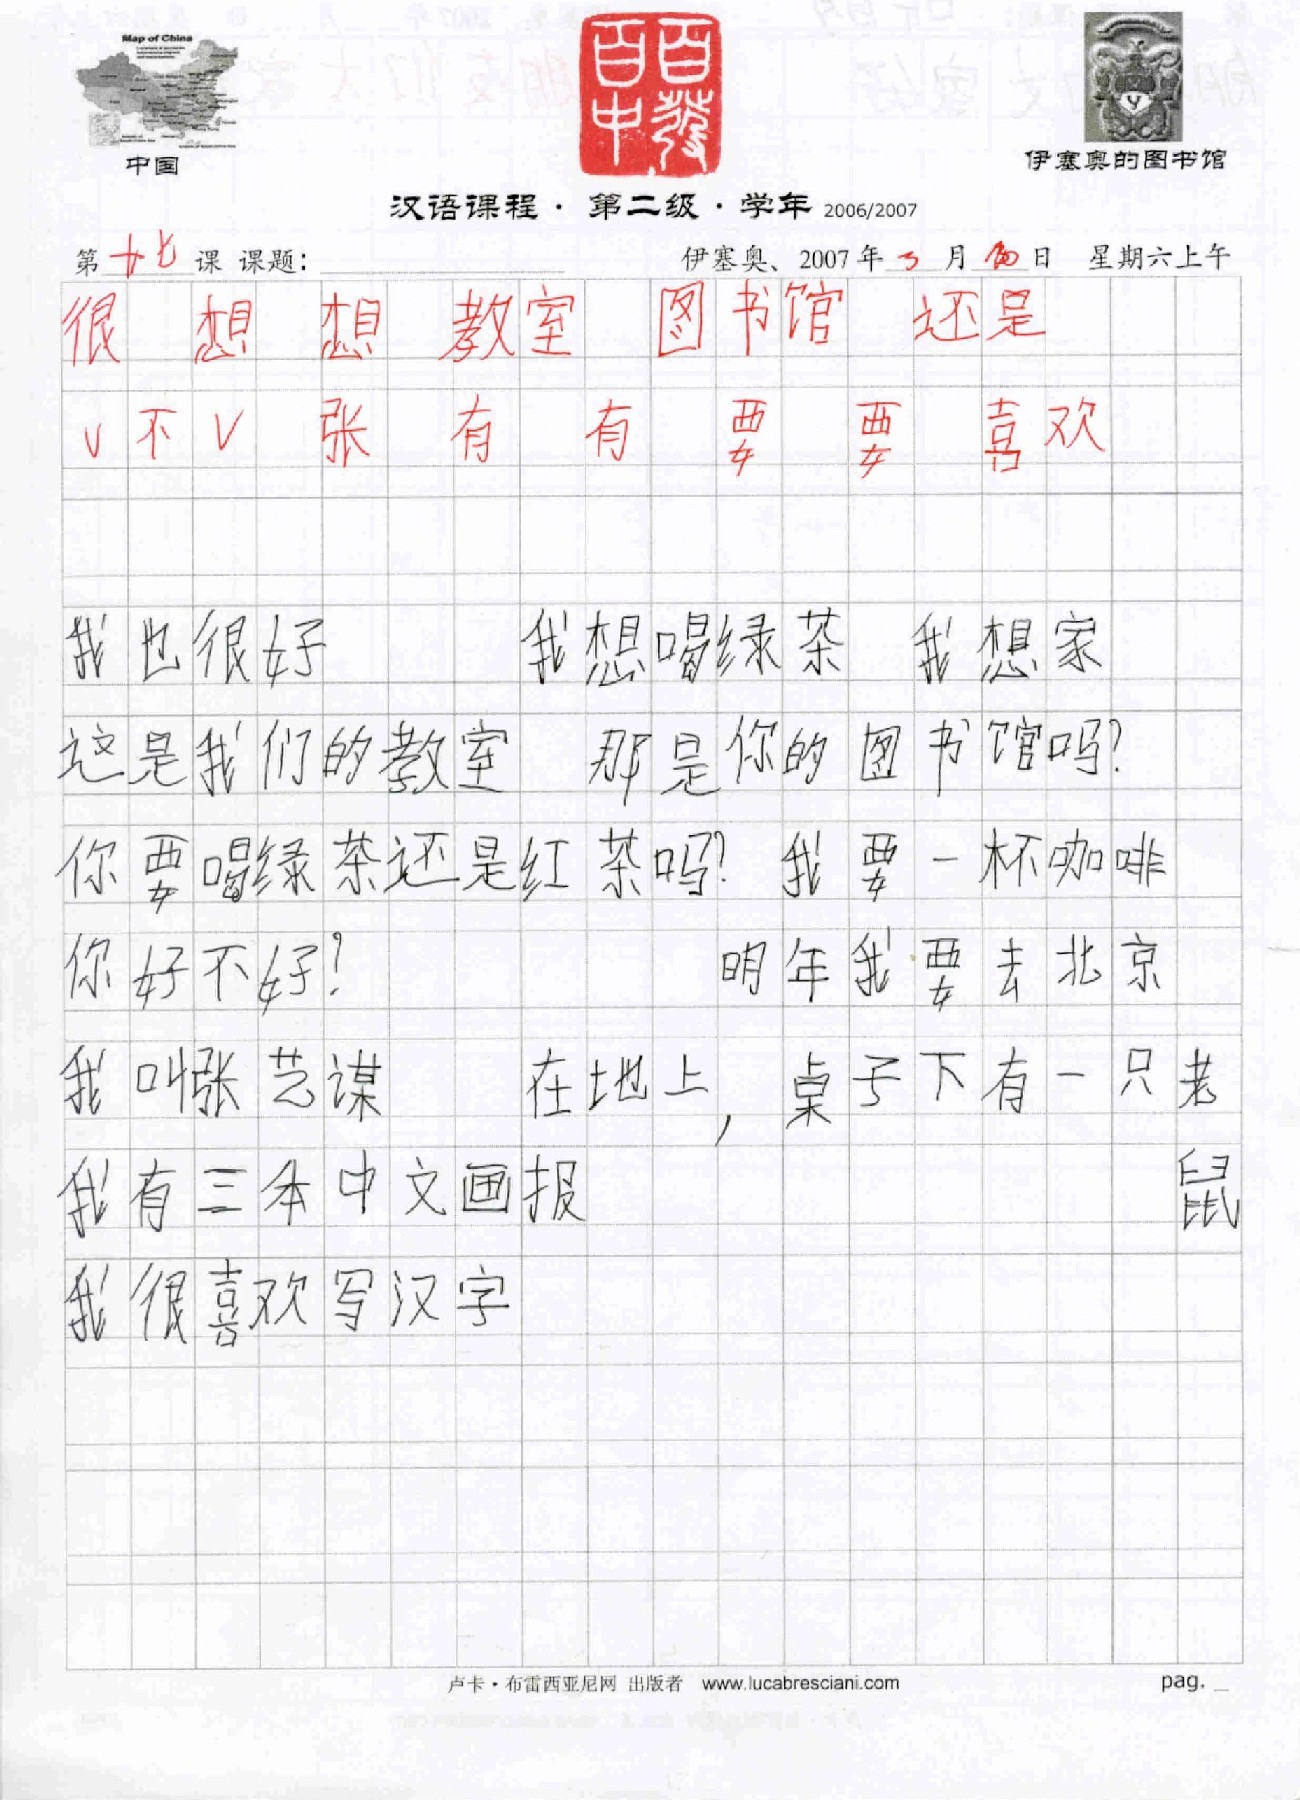 Map of China
百發
百中
中国
伊塞奥的图书馆
汉语课程·第二级·学年 2006/2007
第 廿七 课 课题：
伊塞奥、2007 年 3 月 日 星期六上午
很 想 想 教室 图书馆 还是
V不V 张 有 有 要 要 喜欢
我也很好 我想喝绿茶 我想家
这是我们的教室 那是你的图书馆吗?
你要喝绿茶还是红茶吗? 我要一杯咖啡
你好不好? 明年我要去北京
我叫张艺谋 在地上，桌子下有一只老
我有三本中文画报 鼠
我很喜欢写汉字
卢卡·布雷西亚尼网 出版者 www.lucabresciani.com pag. _